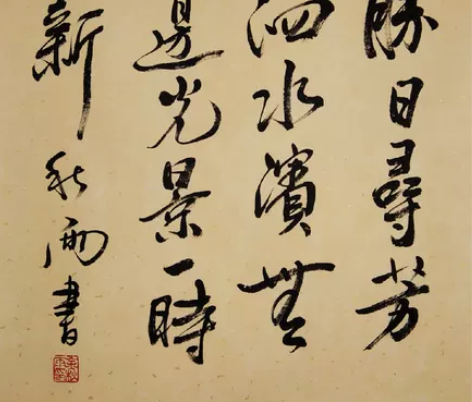 勝日尋芳
泗水濱無
邊光景一時
新
秋雨書